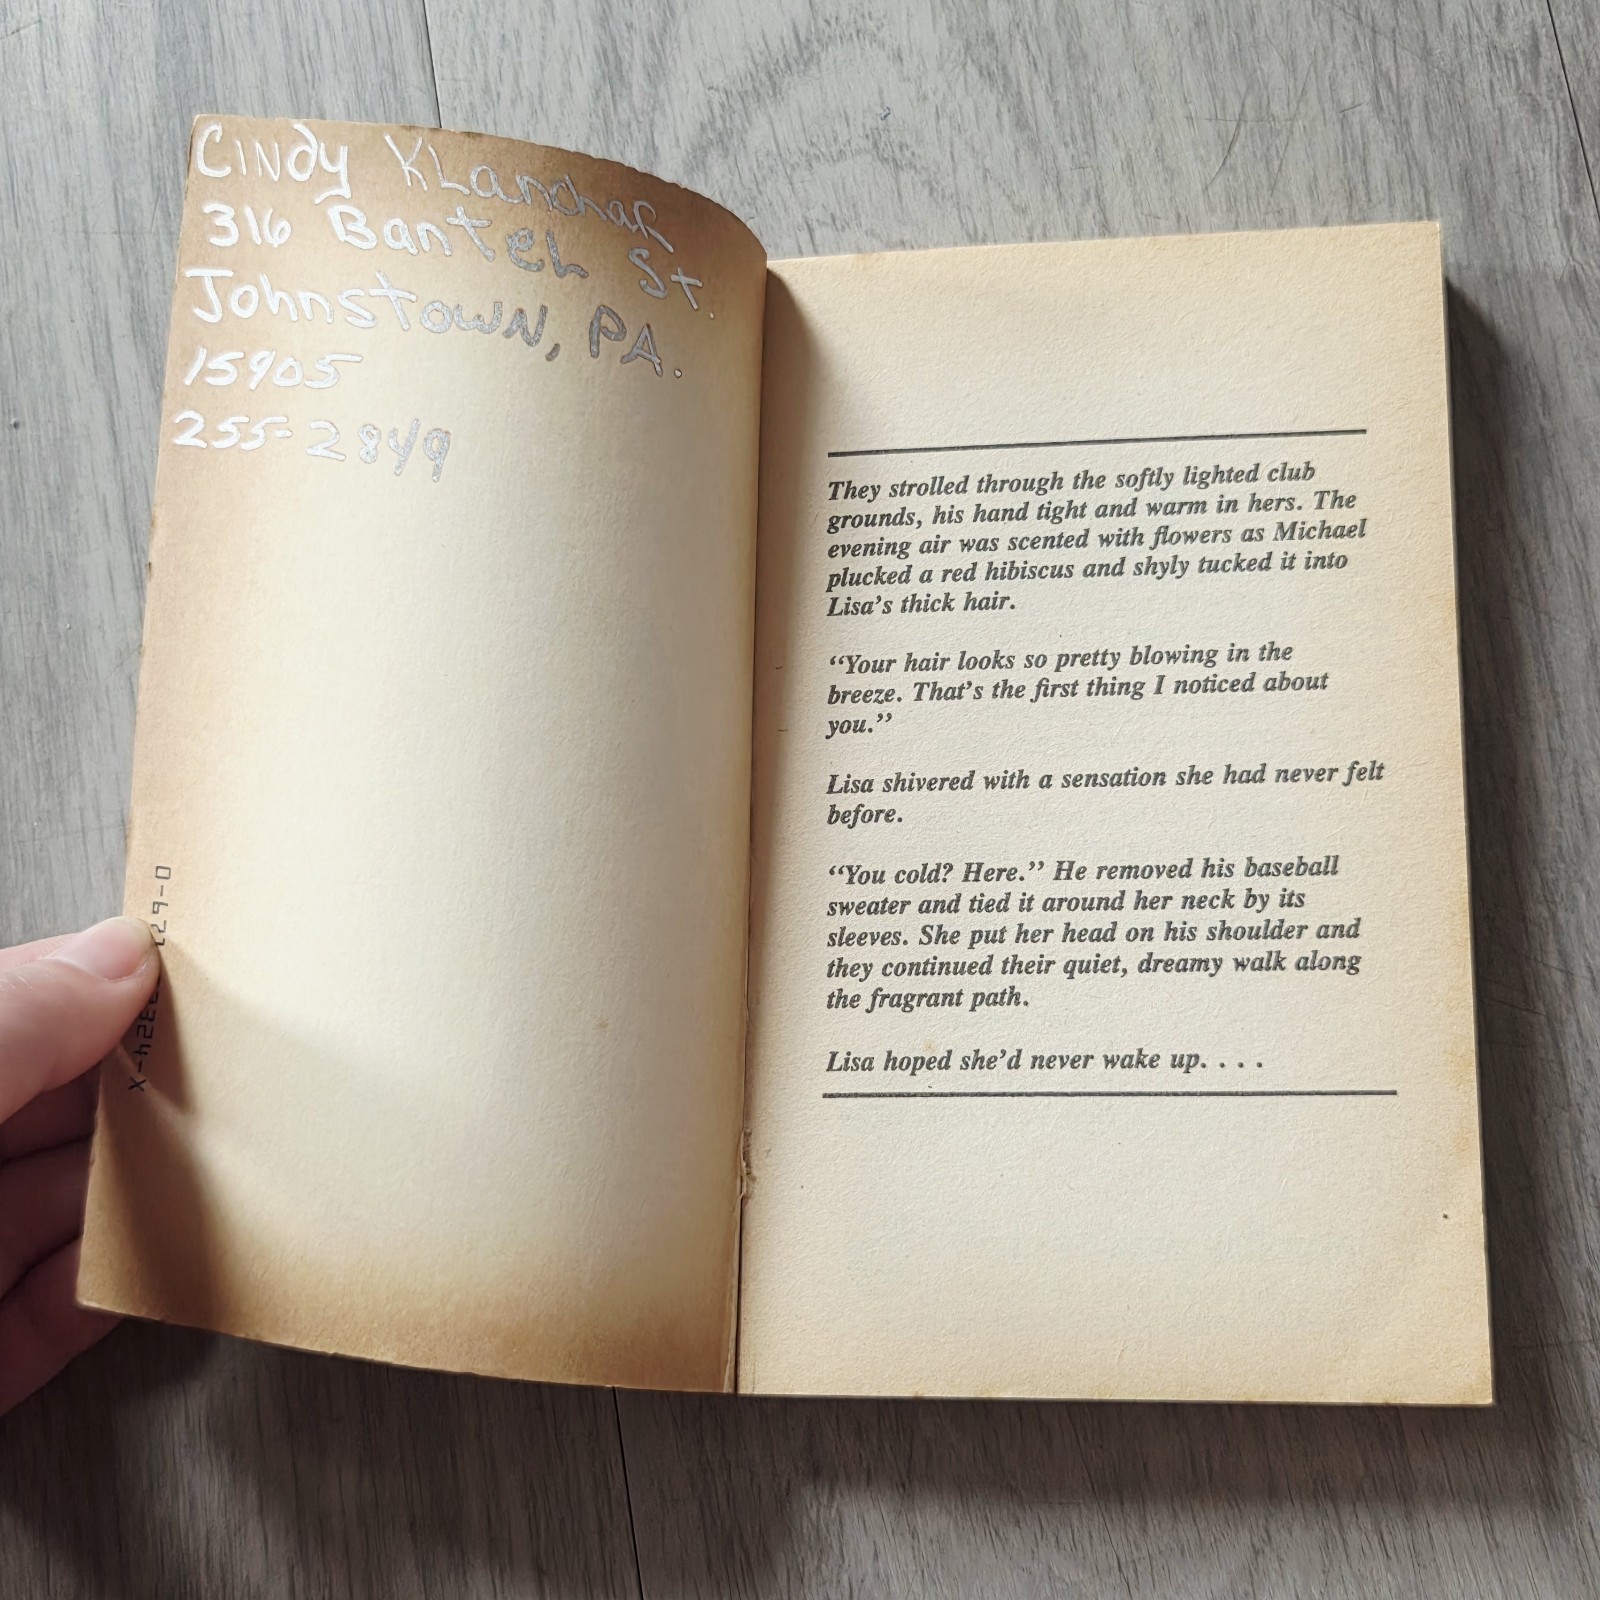 Cindy Klanchar
316 Bantel St.
Johnstown, PA.
15905
255-2849
They strolled through the softly lighted club
grounds, his hand tight and warm in hers. The
evening air was scented with flowers as Michael
plucked a red hibiscus and shyly tucked it into
Lisa's thick hair.
“Your hair looks so pretty blowing in the
breeze. That's the first thing I noticed about
you.”
Lisa shivered with a sensation she had never felt
before.
“You cold? Here.” He removed his baseball
sweater and tied it around her neck by its
sleeves. She put her head on his shoulder and
they continued their quiet, dreamy walk along
the fragrant path.
Lisa hoped she'd never wake up. . . .